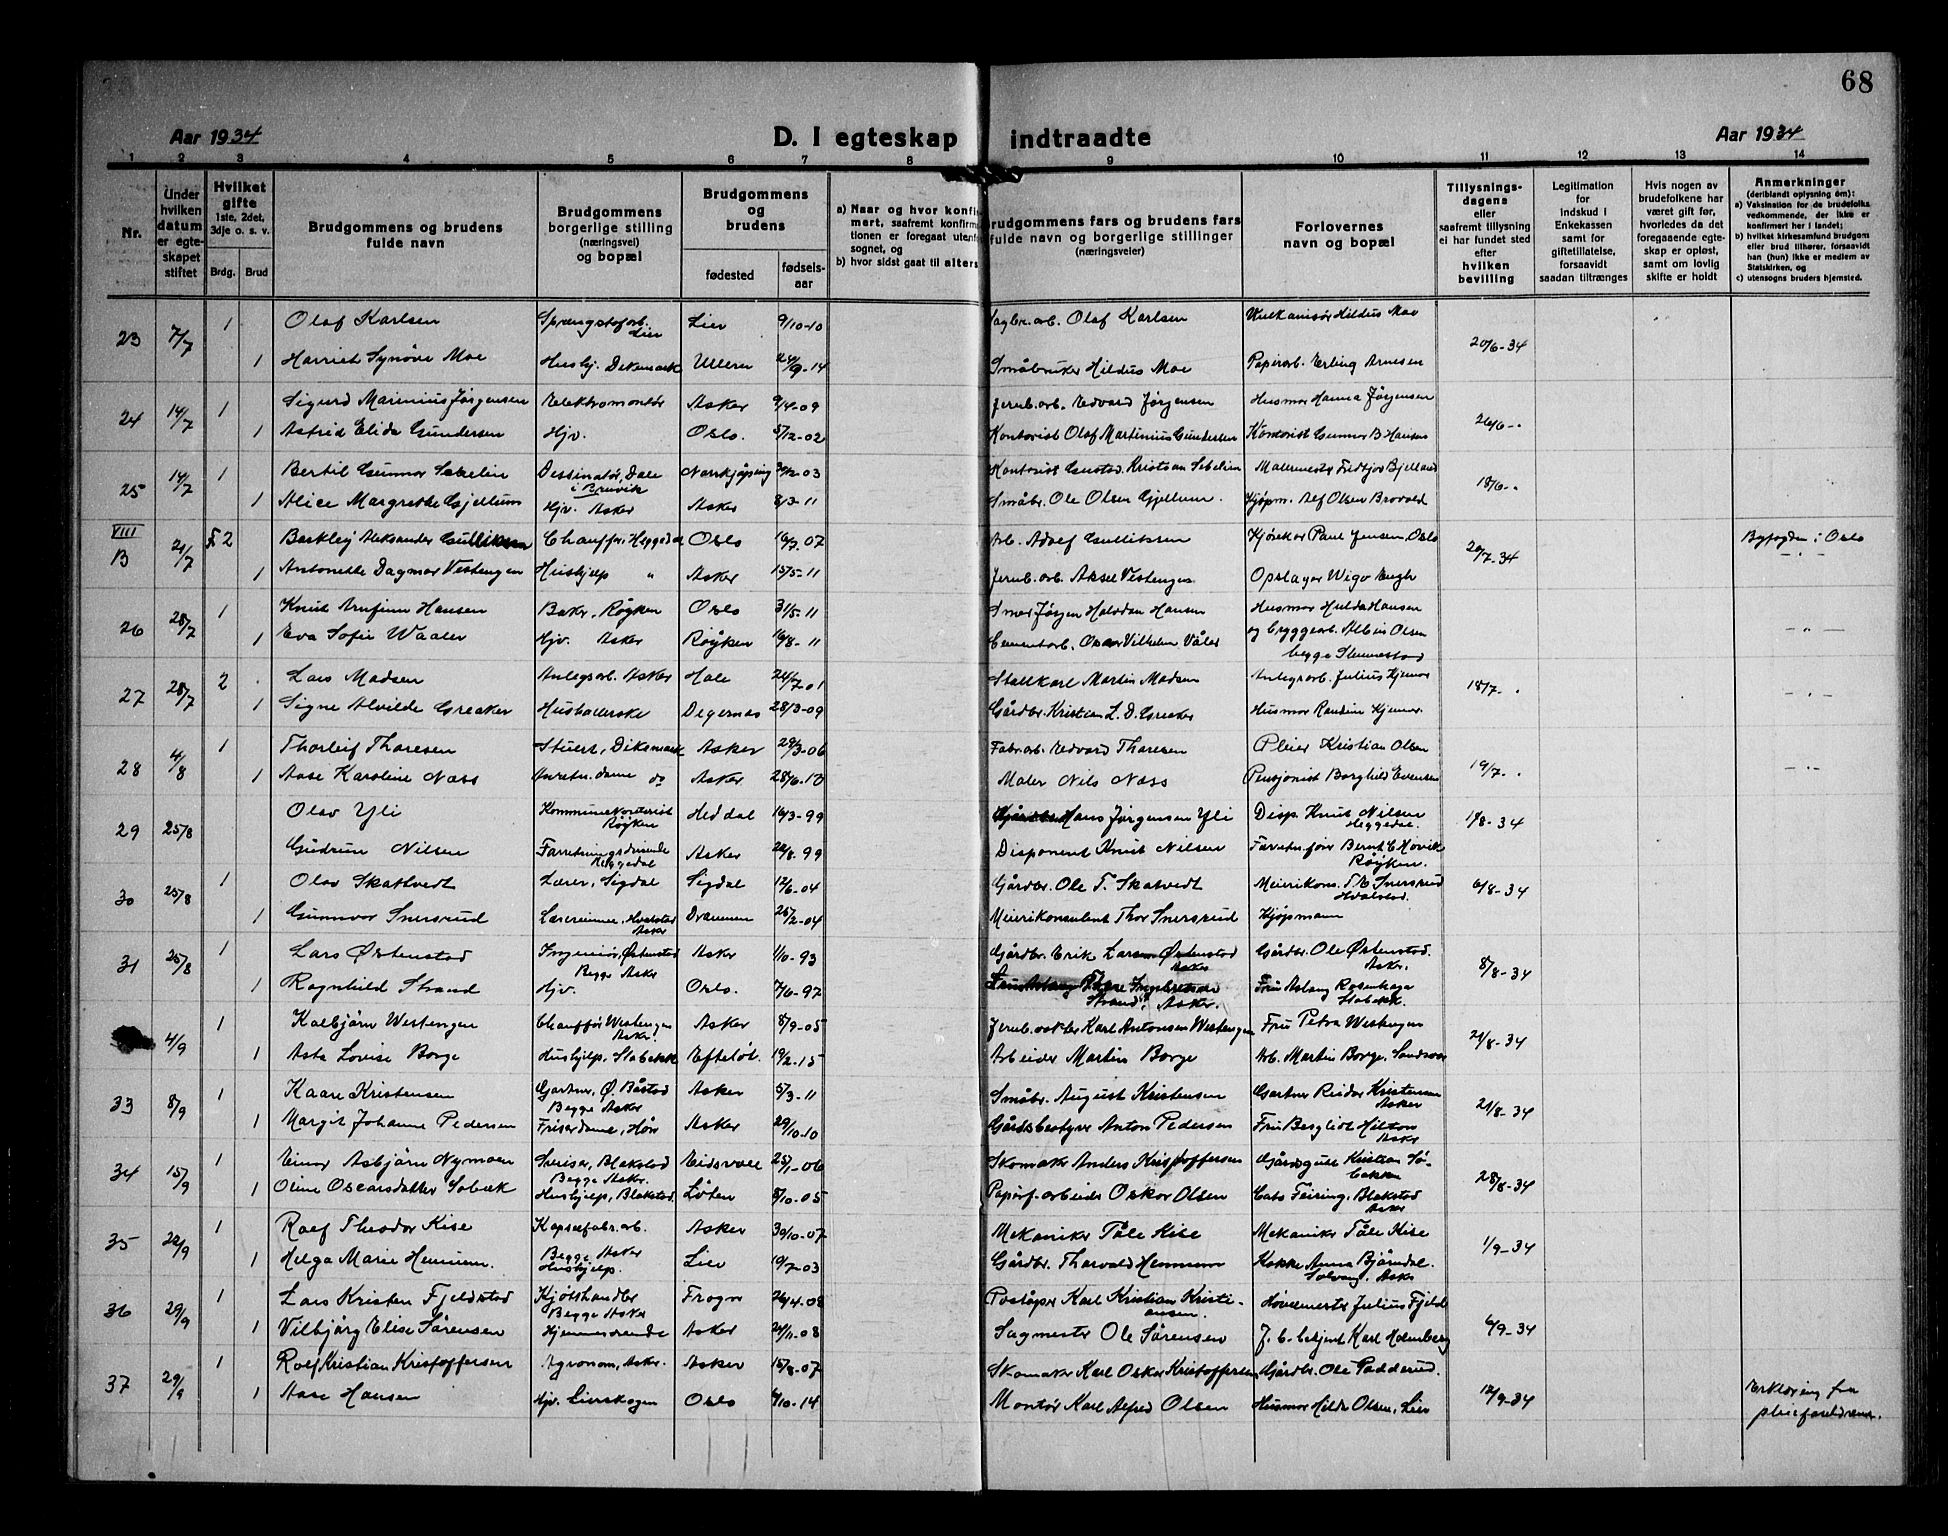 68
Aar 1934
D. I egteskap indtraadte
Aar 1934
1 2 3 4 5 6 7 8 9 10 11 12 13 14
Nr.
Under hvilken datum er egteskapet stiftet
Hvilket gifte
1ste, 2det, 3dje o. s. v.
Brdg. Brud
Brudgommens og brudens fulde navn
Brudgommens borgerlige stilling (næringsvei) og bopæl
Brudgommens og brudens
fødested
fødselsaar
a) Naar og hvor konfi
mert, saafremt konfirma
tionen er foregaat utenfo
sognet, og
b) hvor sidst gaat til alters
rudgommens fars og brudens fars
fulde navn og borgerlige stillinger
(næringsveier)
Forlovernes navn og bopæl
Tillysningsdagens eller saafremt tillysning ei har fundet sted efter hvilken bevilling
Legitimation for indskud i Enkekassen samt for giftetillatelse, forsaavidt saadan tiltrænges
Hvis nogen av brudefolkene har været gift før, hvorledes da det foregaaende egteskap er opløst, samt om lovlig skifte er holdt
Anmerkninger
(deriblandt oplysning om):
a) Vaksination for de brudefolks vedkommende, der ikke er konfirmert her i landet;
b) hvilket kirkesamfund brudgom eller brud tilhører, forsaavidt han (hun) ikke er medlem av Statskirken, og
c) utensogns bruders hjemsted.
23 7/7 1 Olaf Karlsen Sprengstofarb. Lier Lier 9/10-10 Olaf Karlsen Vulkanisør Hildus Moe 20/6-34
1 Harriet Synøve Moe Hushj. Dikemark Ullern 24/9-14 Småbruker Hildus Moe Papirarb. Erling Arnesen
24 14/7 1 Sigurd Marinius Jørgensen Elektromontør Asker 9/4-09 Jernb.arb. Edvard Jørgensen Husmor Hanna Jørgensen 26/6-"
1 Astrid Elida Gundersen Hjv. Oslo. 5/12-02 Kontorist Olaf Martinius Gundersen Kontorist Gunnar B. Hansen
25 14/7 1 Bertil Gunnar Sebelin Destinatør, Dale i Bruvik Norrkjøping 30/12-03 Kontorist Gustav Kristian Sebelin Malermester Fridtjov Bjelland 18/6-"
1 Alice Margrethe Gjellum Hjv. Asker Asker 8/3-11 Småbr. Ole Olsen Gjellum. Kjøpm. Alf Olsen Brovold
VIII B 21/7 F 2 Aleksander Gulliksen Chauffør, Heggedal Oslo 16/7-07 Arb. Adolf Gulliksen Paul Jensen, Oslo 20/7-34 Byfogden i Oslo
1 Antonette Dagmar Vestengen Hushjelp " Asker 15/5-11 Jernb.arb. Aksel Vestengen Opslager Wigo Engh -"-
26 28/7 1 Knut Arnfinn Hansen Baker, Røyken Oslo 31/5-11 Smed Jørgen Halvdan Hansen Husmor Hulda Hansen
1 Eva Sofie Waaler Hjv. Asker Røyken 16/8-11 Cementarb. Oscar Vilhelm Våler og byggearb. Albin Olsen begge Slemmestad -"-
27 28/7 2 Lars Madsen Anlegsarb. Asker Hole 24/7-01 Stallkarl Martin Madsen Anlegsarb. Julius Kjemor 18/7-"
1 Signe Alvilde Greaker Husholderske Degernes 28/3-09 Gårdbr. Kristian L. D. Greaker Husmor Randin Kjemor. -"-
28 4/8 1 Thorleif Thoresen Stuert, Dikemark Asker 29/3-06 Fabr.arb. Edvard Thoresen Pleier Kristian Olsen 19/7-"
1 Aase Karoline Næss Anretn.dame do Asker 28/6-13 Maler Nils Næss Pensjonist Borghild Evensen -"-
29 25/8 Olav Yli Kommunekontorist Røyken Heddal 16/3-99 Hans Jørgensen Yli Disp. Knut Nilsen Heggedal. 1/8-34
Gudrun Nilsen Forretningsdrivende Heggedal Asker 22/8-99 Disponent Knut Nilsen Forretn.fører Bernt C. Hovik Røyken.
30 25/8 1 Olav Skattvedt Lærer, Sigdal Sigdal 12/6-04 Gårdbr. Ole T. Skatvedt Meierikons. T. E. Snersrud Hvalstad. 6/8-34
1 Gunnvor Snersrud Lærerinne, Hvalstad Asker Drammen 25/2-04 Meierikonsulent Thor Snersrud Kjøpmann
31 25/8 1 Lars Østenstad Ingeniør, Østenstad Asker 1/10-93 Gårdbr. Erik Larsen Østenstad Asker Gårdbr. Ole Østenstad. Asker. 8/8-34
1 Ragnhild Strand Begge Asker Hjv. Oslo. 7/6-97 Ingebretsen Strand, Asker. Fru Aslaug Rosenhaga Stabekk.
4/9 1 Kolbjørn Westengen Chauffør Westengen Asker. Asker 8/9-05 Karl Antonsen Westengen Fru Petra Westengen 21/8-34
1 Asta Lovise Borge Hushjelp, Stabekk Efteløt. 19/2-15 Arbeider Martin Borge Arb. Martin Borge,
33 8/9 1 Kaare Kristensen Gartner, Ø. Båstad Begge Asker Asker 5/3-11 Småbr. August Kristensen Gartner Reidar Kristensen Asker 21/8-34
1 Margit Johanne Pedersen Friserdame, Høn Asker 29/10-10 Gårdsbestyrer Anton Pedersen Fru Bergliot Hilton Asker
34 15/9 1 Einar Asbjørn Nymoen Sveiser, Blakstad Begge Asker. Eidsvoll 25/1-06 Skomaker Anders Kristoffersen Gårdsgutt Kristian Søbakken 28/8-34
1 Oline Oscarsdatter Sobæk Hushjelp, Blakstad Løten 8/10-05 Papirf.arbeider Oskar Olsen Feiring, Blakstad Asker
35 22/9 1 Rolf Theodor Kise Kapselfabr.arb. Asker 30/10-07 Mekaniker Påle Kise Mekaniker Påle Kise 1/9-34
1 Helga Marie Hennum. Begge Asker Hushjelp. Lier 19/7-03 Gårdbr. Thorvald Hennum Kokke Anna Bjørndal. Solvang, Asker
36 29/9 1 Lars Kristen Fjeldstad Kjøtthandler Begge Asker Frogner 26/4-08 Poståpner Karl Kristian Kristiansen. Hovmester Julius Fjeld 6/9-34
1 Vilbjørg Elise Sørensen Hjemmeværende Asker 24/11-08 Sagmester Ole Sørensen J. b. betjent Karl Holmberg
37 29/9 1 Rolf Kristian Kristoffersen Agronom, Asker. Asker 15/8-07 Skomaker Karl Oskar Kristoffersen Gårdbr. Ole Padderud. 12/9-34
1 Aase Hansen Hjv. Lierskogen Oslo 4/10-14 Montør Karl Alfred Olsen Husmor Hilda Olsen, Lier Erklæring fra pleieforeldrene.